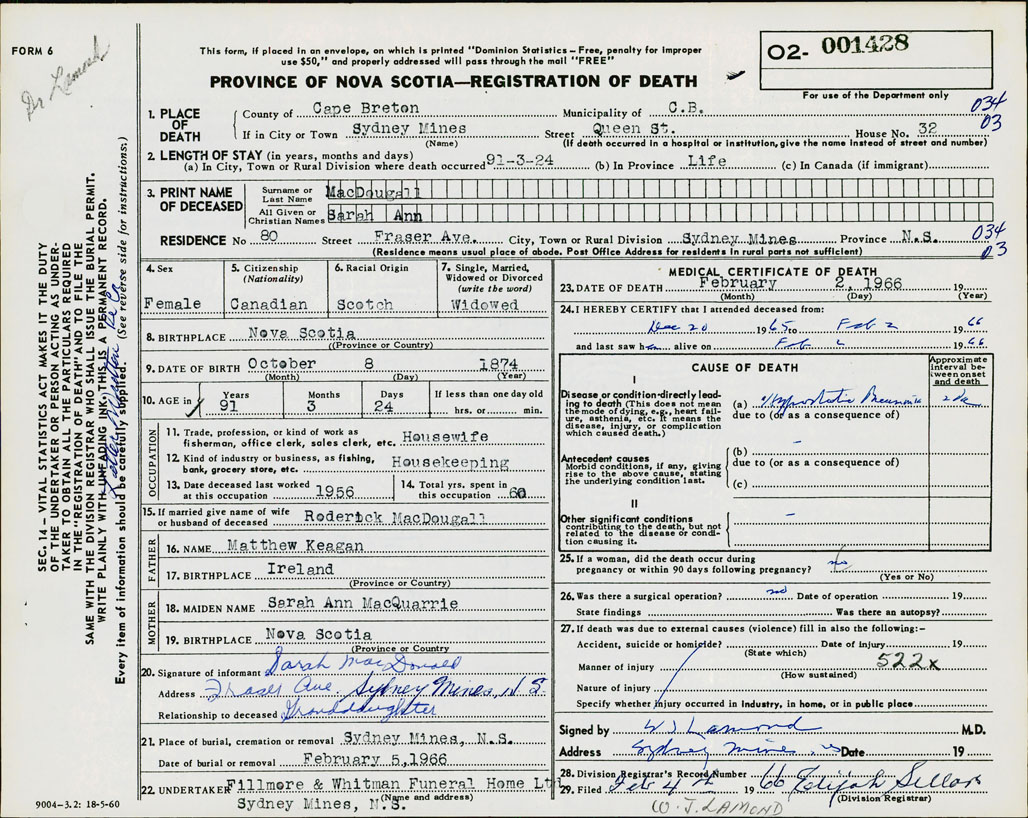 FORM 6
Dr Lamond
This form, if placed in an envelope, on which is printed "Dominion Statistics – Free, penalty for improper
use $50," and properly addressed will pass through the mail "FREE"
PROVINCE OF NOVA SCOTIA—REGISTRATION OF DEATH
O2- 001428
For use of the Department only
034
03
1. PLACE OF DEATH
County of Cape Breton Municipality of C.B.
If in City or Town Sydney Mines Street Queen St. House No. 32
(Name) (If death occurred in a hospital or institution, give the name instead of street and number)
2. LENGTH OF STAY (in years, months and days)
(a) In City, Town or Rural Division where death occurred 91-3-24 (b) In Province Life (c) In Canada (if immigrant)
3. PRINT NAME OF DECEASED
Surname or Last Name MacDougall
All Given or Christian Names Sarah Ann
RESIDENCE No 80 Street Fraser Ave. City, Town or Rural Division Sydney Mines Province N.S.
034
03
(Residence means usual place of abode. Post Office Address for residents in rural parts not sufficient)
4. Sex
Female
5. Citizenship (Nationality)
Canadian
6. Racial Origin
Scotch
7. Single, Married, Widowed or Divorced (write the word)
Widowed
8. BIRTHPLACE Nova Scotia
((Province or Country)
9. DATE OF BIRTH October 8 1874
(Month) (Day) (Year)
10. AGE in Years Months Days If less than one day old
91 3 24 hrs. or min.
OCCUPATION
11. Trade, profession, or kind of work as
fisherman, office clerk, sales clerk, etc. Housewife
12. Kind of industry or business, as fishing,
bank, grocery store, etc. Housekeeping
13. Date deceased last worked at this occupation 1956
14. Total yrs. spent in this occupation 60
15. If married give name of wife or husband of deceased Roderick MacDougall
FATHER
16. NAME Matthew Keagan
17. BIRTHPLACE Ireland
(Province or Country)
MOTHER
18. MAIDEN NAME Sarah Ann MacQuarrie
19. BIRTHPLACE Nova Scotia
(Province or Country)
20. Signature of informant Sarah MacDonald
Address Fraser Ave Sydney Mines, N.S.
Relationship to deceased Granddaughter
21. Place of burial, cremation or removal Sydney Mines, N.S.
Date of burial or removal February 5, 1966
22. UNDERTAKER Fillmore & Whitman Funeral Home Ltd
Sydney Mines, N.S. (Name and address)
MEDICAL CERTIFICATE OF DEATH
23. DATE OF DEATH February 2, 1966 19
(Month) (Day) (Year)
24. I HEREBY CERTIFY that I attended deceased from:
Dec 20 1965 to Feb 2 1966
and last saw h alive on Feb 1966
CAUSE OF DEATH
Approximate interval between onset and death
I
Disease or condition directly leading to death (This does not mean the mode of dying, e.g., heart failure, asthenia, etc. It means the disease, injury, or complication which caused death.)
(a) Hypostatic Pneumonia
due to (or as a consequence of)
Antecedent causes
Morbid conditions, if any, giving rise to the above cause, stating the underlying condition last.
(b)
due to (or as a consequence of)
(c)
II
Other significant conditions
contributing to the death, but not related to the disease or condition causing it.
25. If a woman, did the death occur during
pregnancy or within 90 days following pregnancy? no
(Yes or No)
26. Was there a surgical operation? no Date of operation 19
State findings Was there an autopsy?
27. If death was due to external causes (violence) fill in also the following:–
Accident, suicide or homicide? Date of injury 19
(State which)
Manner of injury 522x
(How sustained)
Nature of injury
Specify whether injury occurred in industry, in home, or in public place
Signed by W J Lamond M.D.
Address Sydney Mines Date 19
28. Division Registrar's Record Number
29. Filed Feb 4th 1966 Elijah Sellars
(Division Registrar)
W. J. LAMOND
9004–3.2: 18-5-60
SEC. 14 – VITAL STATISTICS ACT MAKES IT THE DUTY
OF THE UNDERTAKER OR PERSON ACTING AS UNDER-
TAKER TO OBTAIN ALL THE PARTICULARS REQUIRED
IN THE "REGISTRATION OF DEATH" AND TO FILE THE
SAME WITH THE DIVISION REGISTRAR WHO SHALL ISSUE THE BURIAL PERMIT.
WRITE PLAINLY WITH UNFADING INK, THIS IS A PERMANENT RECORD.
Every item of information should be carefully supplied. (See reverse side for instructions.)